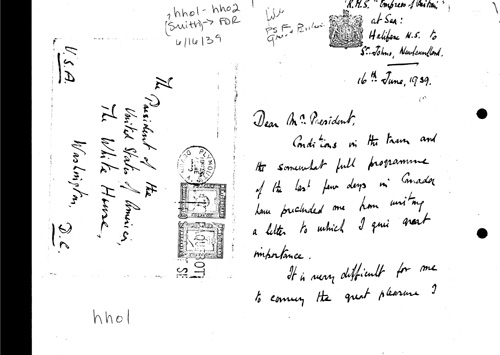 hh01-hh02
(Smith) → FDR
6/16/39
The President of the
United States of America,
The White House,
Washington, D.C.
U.S.A.
hh01
PSF
R.M.S. "Empress of Britain"
at Sea:
Halifax N.S. to
St. Johns, Newfoundland.
16th June, 1939.
Dear Mr. President,
Conditions in the train and
the somewhat full programme
of the last few days in Canada
have precluded me from writing
a letter to which I give great
importance.
It is very difficult for me
to convey the great pleasure I